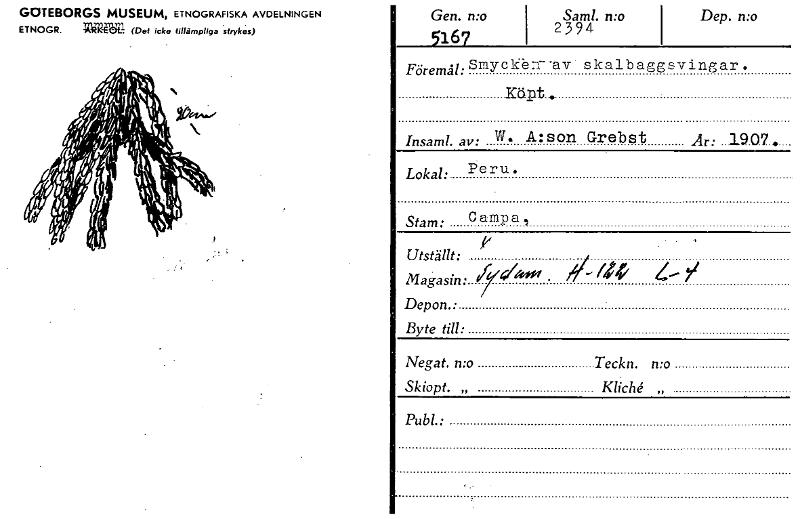 GÖTEBORGS MUSEUM, ETNOGRAFISKA AVDELNINGEN
ETNOGR. ARKEOL. (Det icke tillämpliga strykes)
20cm
Gen. n:o Saml. n:o Dep. n:o
5167 2394
Föremål: Smycken av skalbaggsvingar.
Köpt.
Insaml. av: W. A:son Grebst År: 1907.
Lokal: Peru.
Stam: Campa,
Utställt:
Magasin: Sydam. H-122 L-4
Depon.:
Byte till:
Negat. n:o Teckn. n:o
Skiopt. „ Kliché „
Publ.: